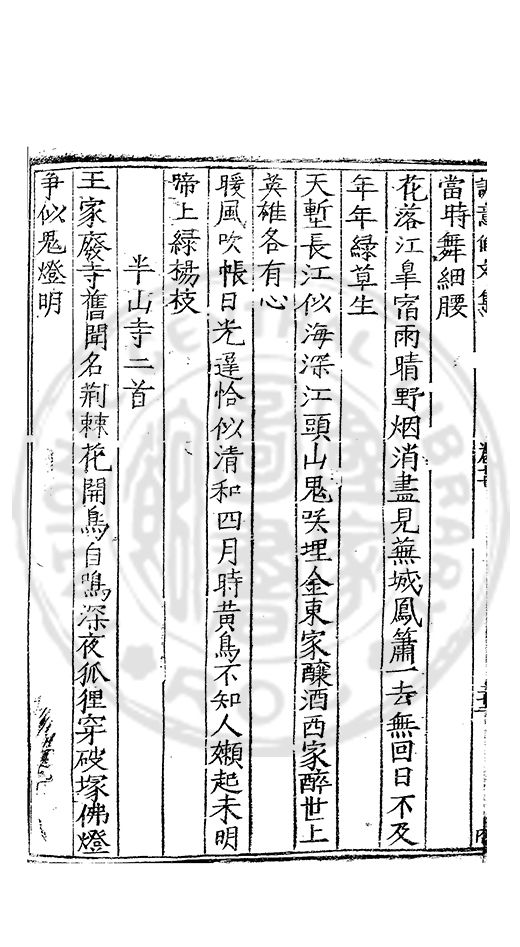 當時舞細腰
花落江皐宿雨晴野烟消盡見蕪城鳳簫一去無回日不及
年年綠草生
天塹長江似海深江頭山鬼哭埋金東家釀酒西家醉世上
英雄各有心
暖風吹帳日光遲恰似清和四月時黃鳥不知人嬾起未明
啼上綠楊枝
半山寺二首
王家廢寺舊聞名荆棘花開鳥自鳴深夜狐狸穿破塚佛燈
爭似鬼燈明